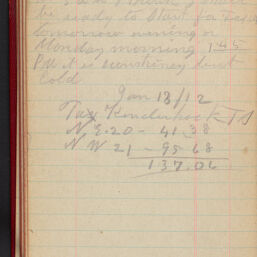 be ready to start for
tomorrow evening or
Monday morning 1-45
PM it is sunshiney but
Cold
Jan 13/12
Tax Kinderhook TS
N E. 20 - 41.38
N W 21 - 95.68
137.06